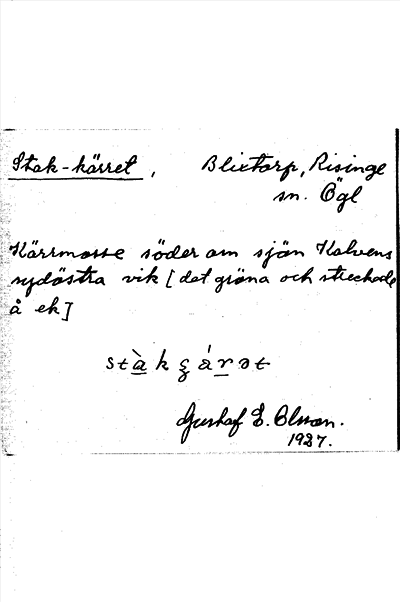 Stak-kärret, Blixtorp, Risinge
sn. Ögl
Kärrmosse söder om sjön Kalvens
sydöstra vik [det gröna och streckade
å ek]
stàk ʒ árət
Gustaf E. Olsson.
1927.